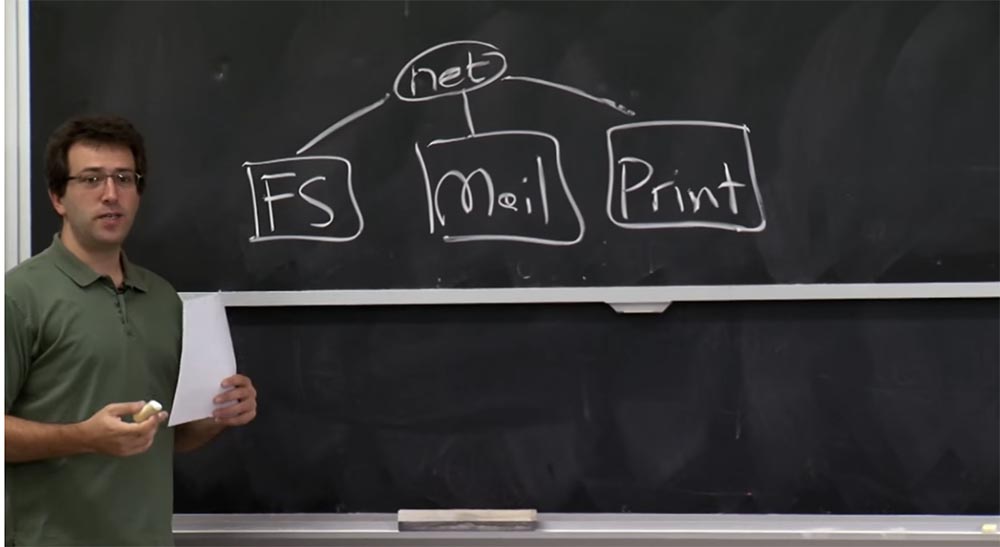 net
FS Mail Print